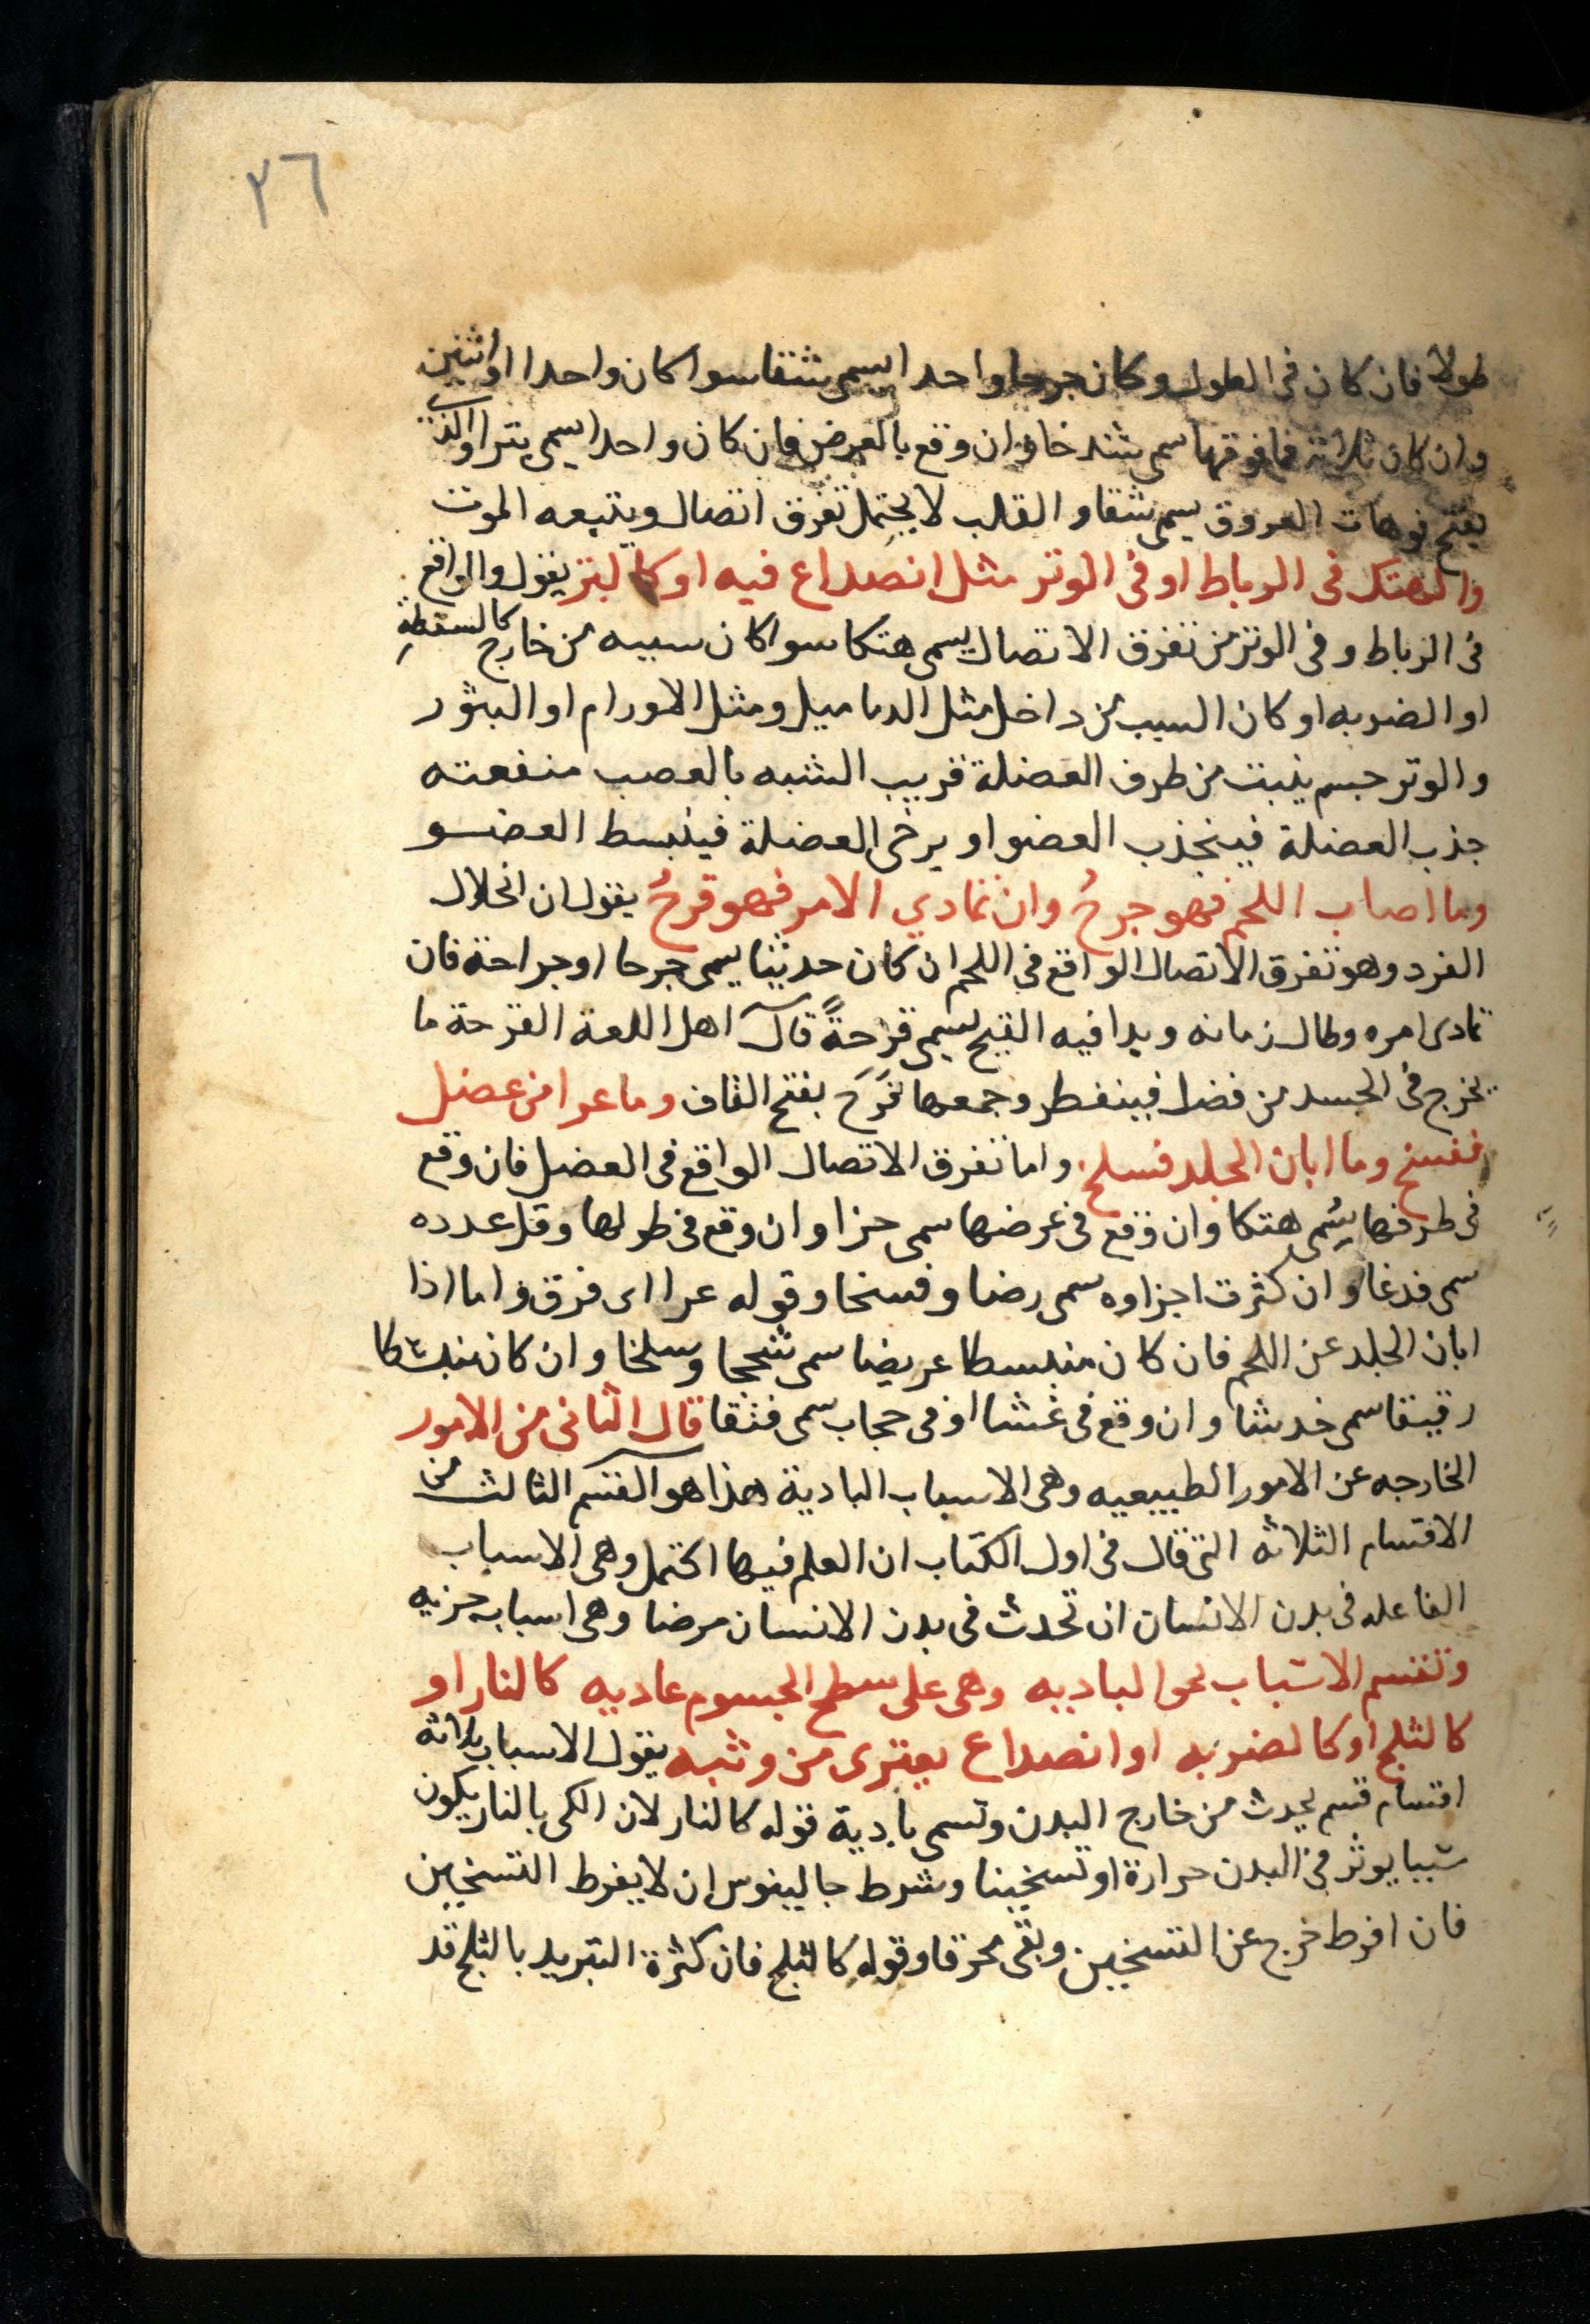 ٢٦
طولا فان كان فى الطول وكان جرحا واحدا يسمى شقا سوا كان واحدا او اثنين
وان كان ثلاثة فما فوقها سمى شدخا وان وقع بالعرض فان كان واحدا يسمى بترا والذى
يفتح فوهات العروق يسمى شقا و القلب لا يحتمل تفرق اتصال ويتبعه الموت
والهتك فى الرباط او فى الوتر مثل انصداع فيه او كالبتر يقول والواقع
فى الرباط و فى الوتر من تفرق الاتصال يسمى هتكا سوا كان سببه من خارج كالسقطة
او الضربه او كان السبب من داخل مثل الدماميل ومثل الاورام او البثور
والوتر جسم ينبت من طرف العضلة قريب الشبه بالعصب منفعته
جذب العضلة فينجذب العضو او يرخى العضلة فينبسط العضو
وما اصاب اللحم فهو جرحُ وان تمادي الامر فهو قرحُ يقول ان انحلال
الفرد وهو تفرق الاتصال الواقع فى اللحم ان كان حديثا يسمى جرحا او جراحة فان
تمادى امره وطال زمانه وبدا فيه القيح يسمى قرحةً قال اهل اللغة القرحة ما
يخرج فى الجسد من فضل فينفطر وجمعها قَرَحَ بفتح القاف وما عرا من عضل
ففسخ وما ابان الجلد فسلخ واما تفرق الاتصال الواقع فى العضل فان وقع
فى طرفها يسمى هتكا وان وقع فى عرضها سمى حزا وان وقع فى طولها وقل عدده
سمى فدغا وان كثرت اجزاوه سمى رضا وفسخا وقوله عرا اى فرق واما اذا
ابان الجلد عن اللحم فان كان منبسطا عريضا سمى شججا وسلخا وان كان
رقيقا سمى خدشا وان وقع فى غشا او فى حجاب سمى فتقا قال الثانى من الامور
الخارجه عن الامور الطبيعيه وهى الاسباب البادية هذا هو القسم الثالث من
الاقسام الثلاثه التى قال فى اول الكتاب ان العلم فيها اكتمل وهى الاسباب
الفاعله فى بدن الانسان ان تحدث فى بدن الانسان مرضا وهى اسباب جزيه
وتنقسم الاسباب نحو الباديه وهى على سطح الجسوم عاديه كالنار او
كالثلج او كالضربه او انصداع يعترى من وثبه يقول الاسباب ثلاثه
اقسام قسم يحدث من خارج البدن وتسمى بادية قوله كالنار لان الكى بالنار يكون
سببا يوثر فى البدن حرارة او تسخينا وشرط جالينوس ان لا يفرط التسخين
فان افرط خرج عن التسخين وبقى محرقا وقوله كالثلج فان كثرة التبريد بالثلج قد